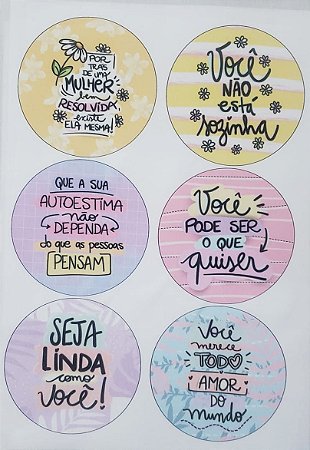 POR
TRÁS
DE UMA
MULHER
bem
RESOLVIDA
existe
ELA MESMA!
Você
NÃO
está
sozinha
QUE A SUA
AUTOESTIMA
não
DEPENDA
do que as pessoas
PENSAM
Você
PODE SER
O QUE
quiser
SEJA
LINDA
como
VOCÊ!
Você
merece
TODO
AMOR
DO
mundo